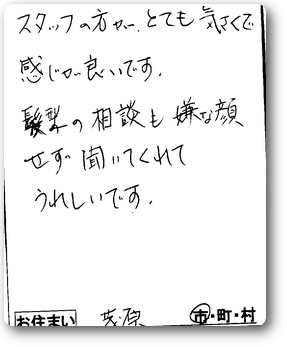 スタッフの方が、とても気さくで
感じが良いです。
髪型の相談も嫌な顔
せず聞いてくれて
うれしいです。
お住まい 茂原 市・町・村